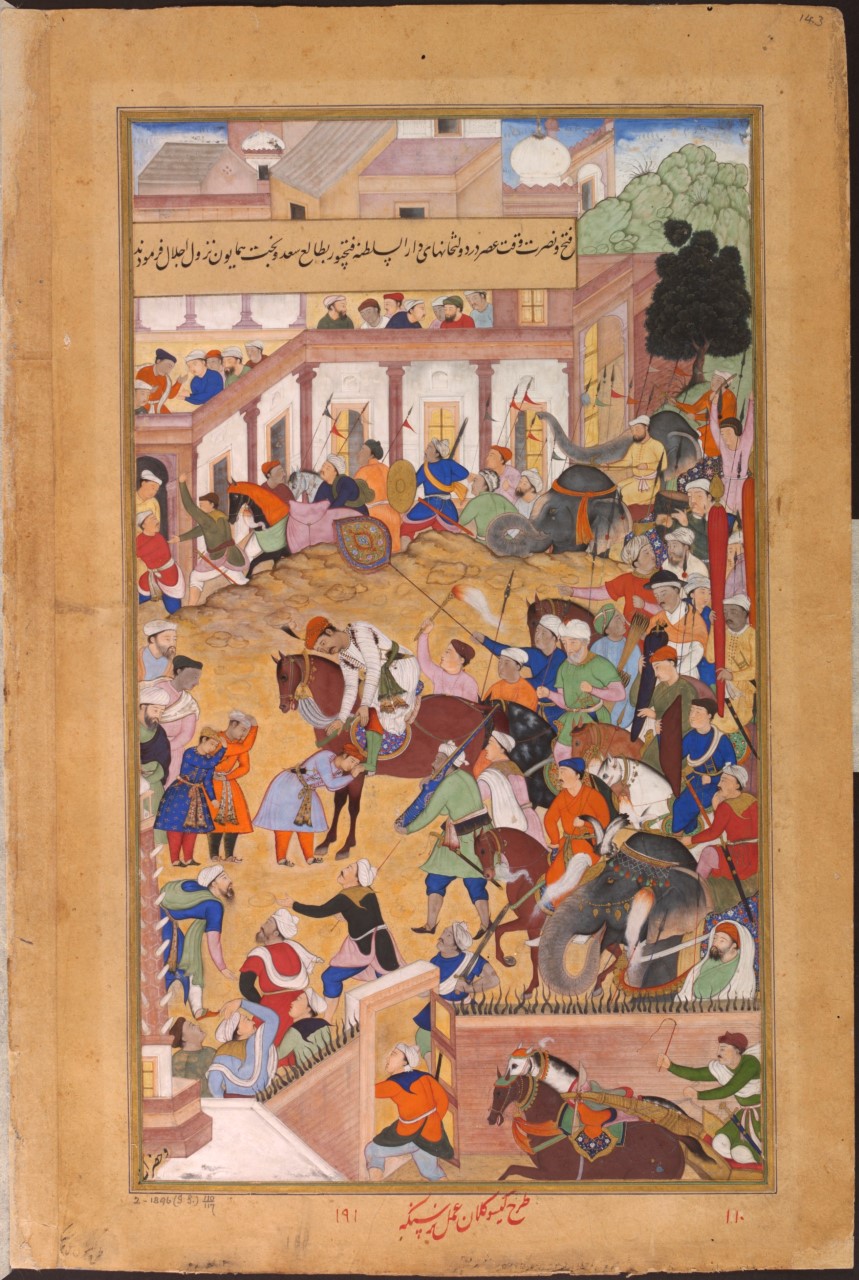 143
فتح و نصرت وقت عصر در دولتخانهای دار السلطنه فتحپور بطالع سعد و بخت همایون نزول اجلال فرمودند
2-1896 (I.S.) 110/117
طرح کیسو کلان عمل نرسنکه
۱۹۱
۱۱۰